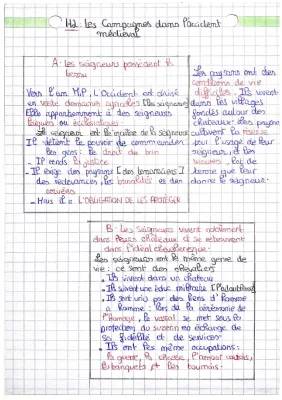 H2: Les Campagnes dans l'Occident
médiéval
A: les seigneurs possèdent la
terre
Vers l'an M.P, L'Occident est divisé
en vaste domaines agricoles [les seigneuries]
Elles appartiennent à des seigneurs
laïques ou ecclésiastiques.
Le seigneur est le maître de la seigneurie
Il détient le pouvoir de commander
les gens: le droit de ban
- Il rends la justice
- Il exige des paysans [des tenanciers]
des redevances, les banalités et des
corvées
- Mais il a L'OBLIGATION DE LES PROTÉGER
Les paysans ont des
conditions de vie
difficiles. Ils vivent
dans les villages
fondés autour des
châteaux. Les paysans
cultivent la réserve
pour l'usage de leur
seigneur, et les
tenures, lot de
terre que leur
donne le seigneur.
B: Les seigneurs vivent noblement
dans leurs châteaux et se retrouvent
dans l'idéal chevaleresque.
Les seigneurs ont le même genre de
vie: ce sont des chevaliers
- Ils vivent dans un château
- Ils suivent une éduc militaire [l'adoubement]
- Ils sont unis par des liens d'homme
à homme: lors de la cérémonie de
l'hommage, le vassal se met sous la
protection du suzerain en échange de
sa fidélité et de services
- Ils ont les même occupations:
la guerre, la chasse, l'amour courtois,
les banquets et les tournois.